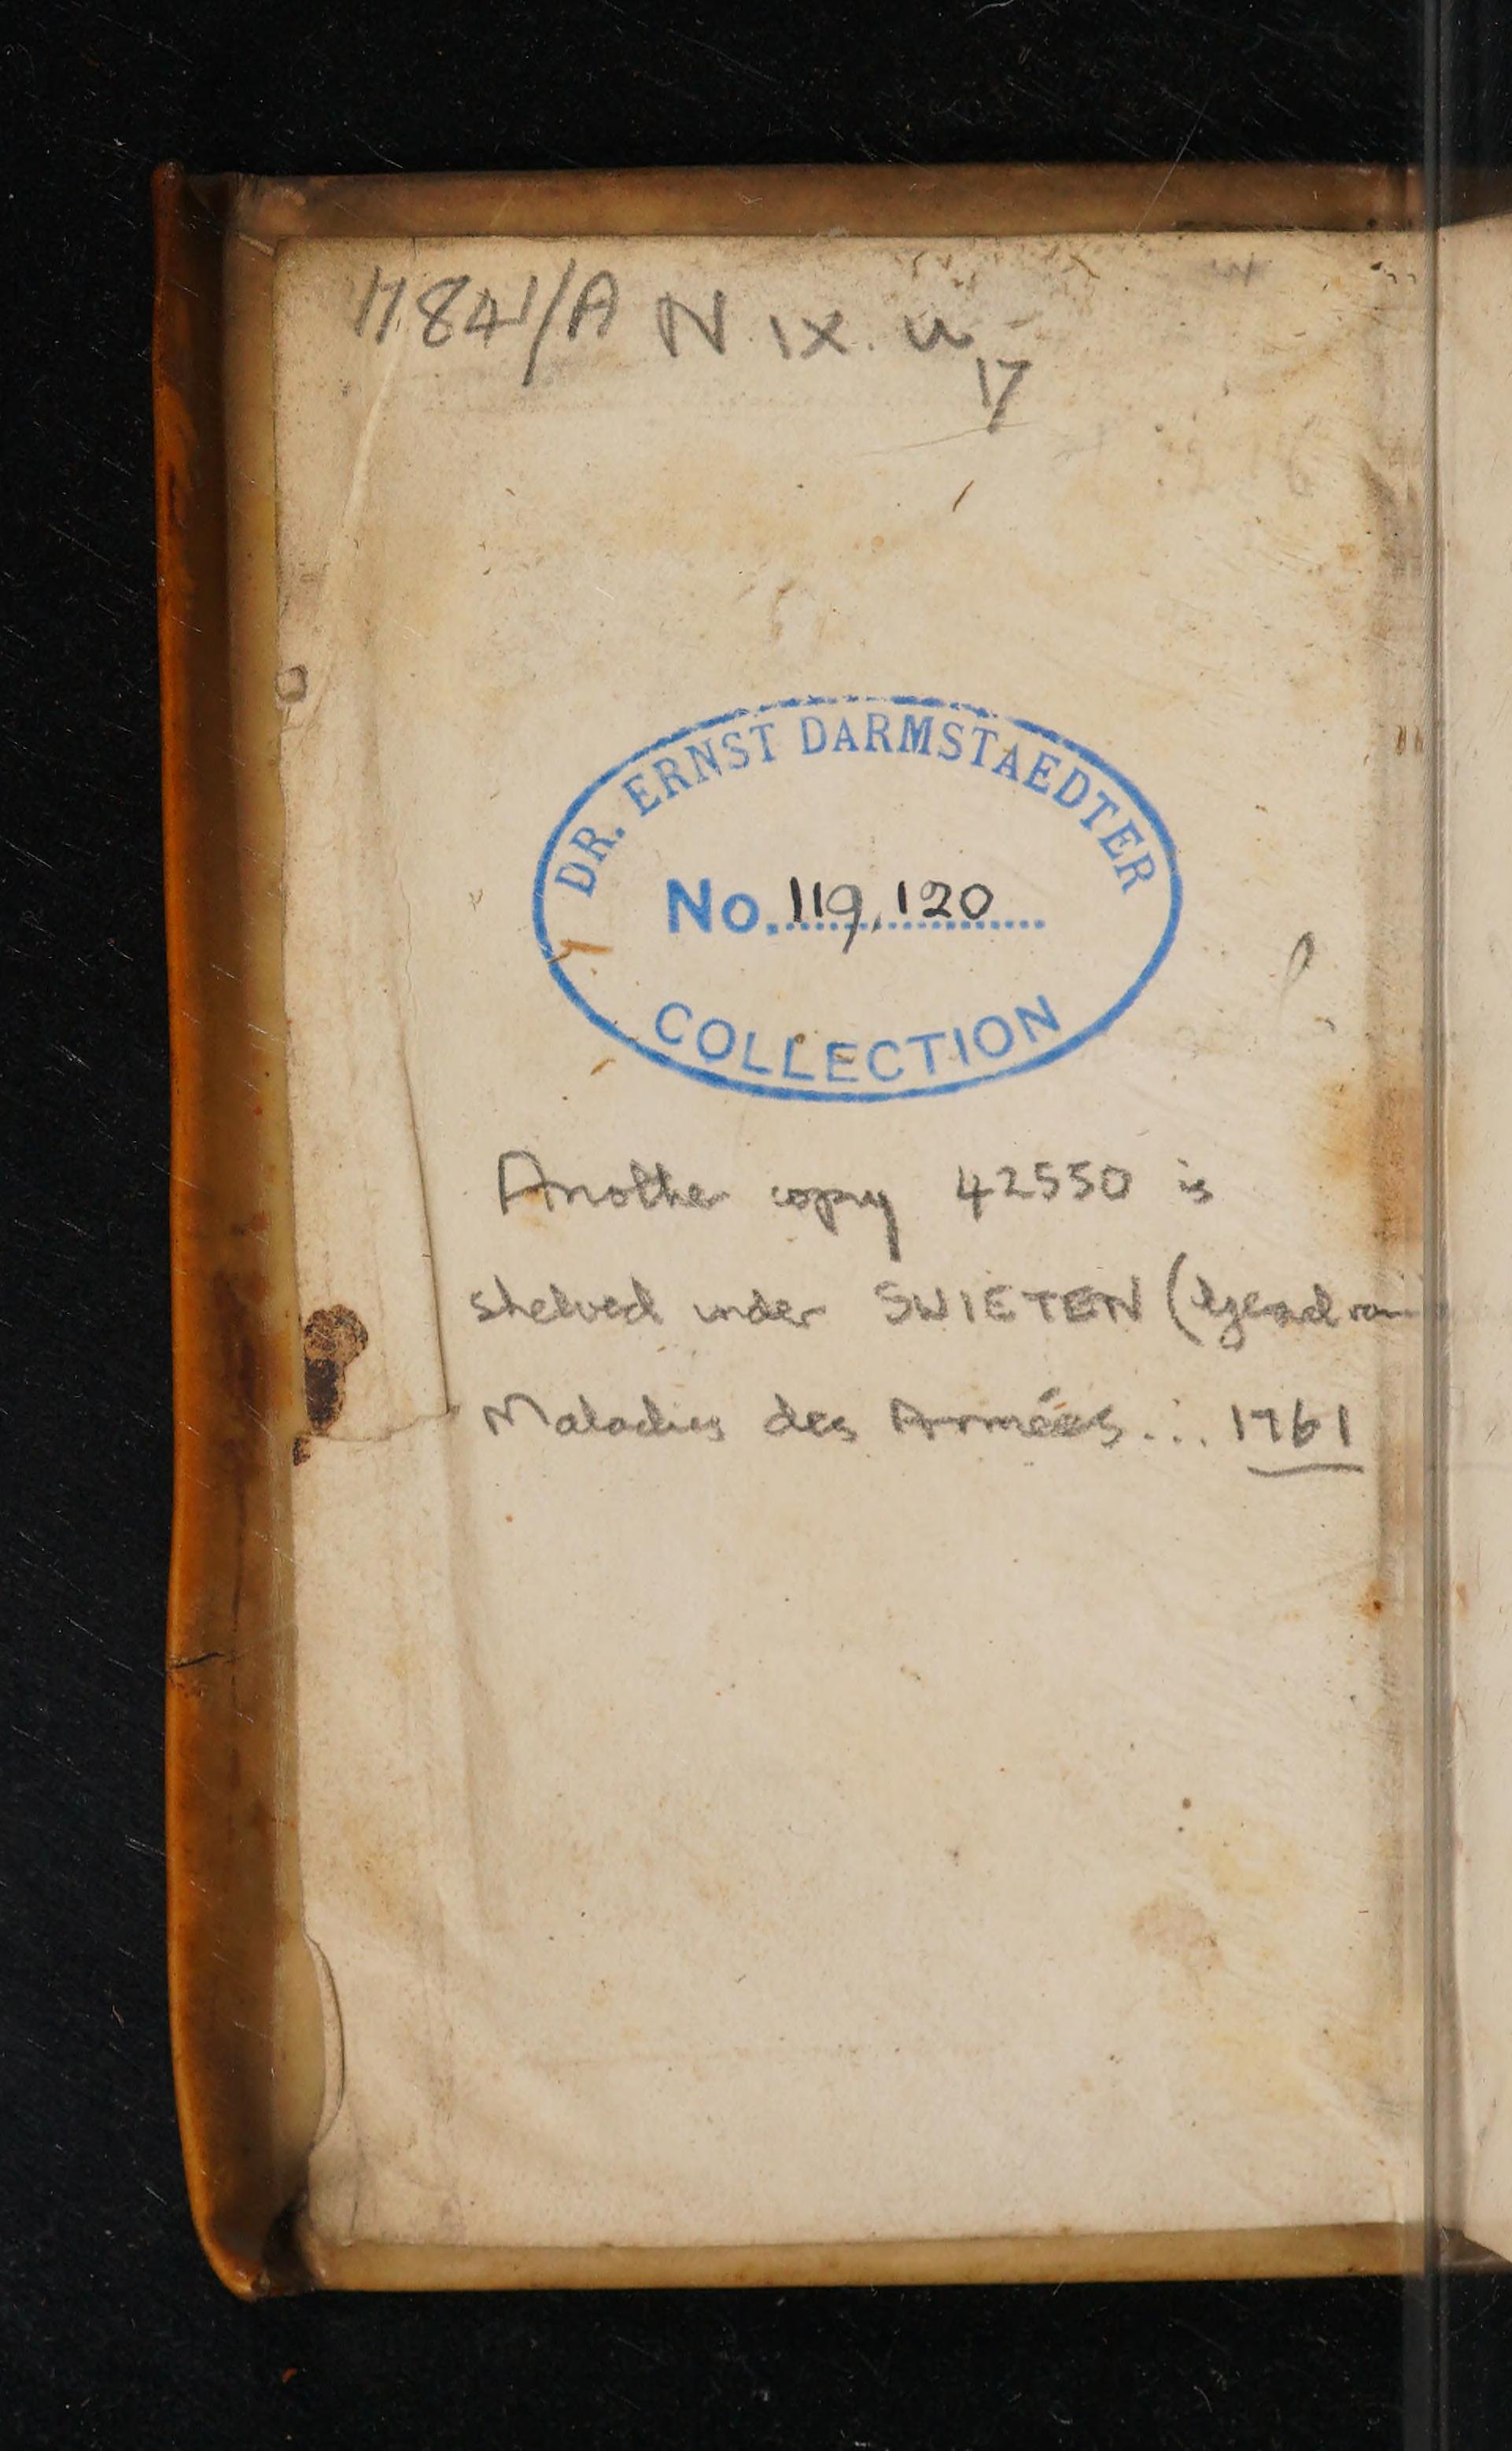 11841/A N. IX. u
17
DR. ERNST DARMSTAEDTER
No. 119, 120
COLLECTION
Another copy 42550 is
shelved under SWIETEN (
Maladies des Armées... 1761